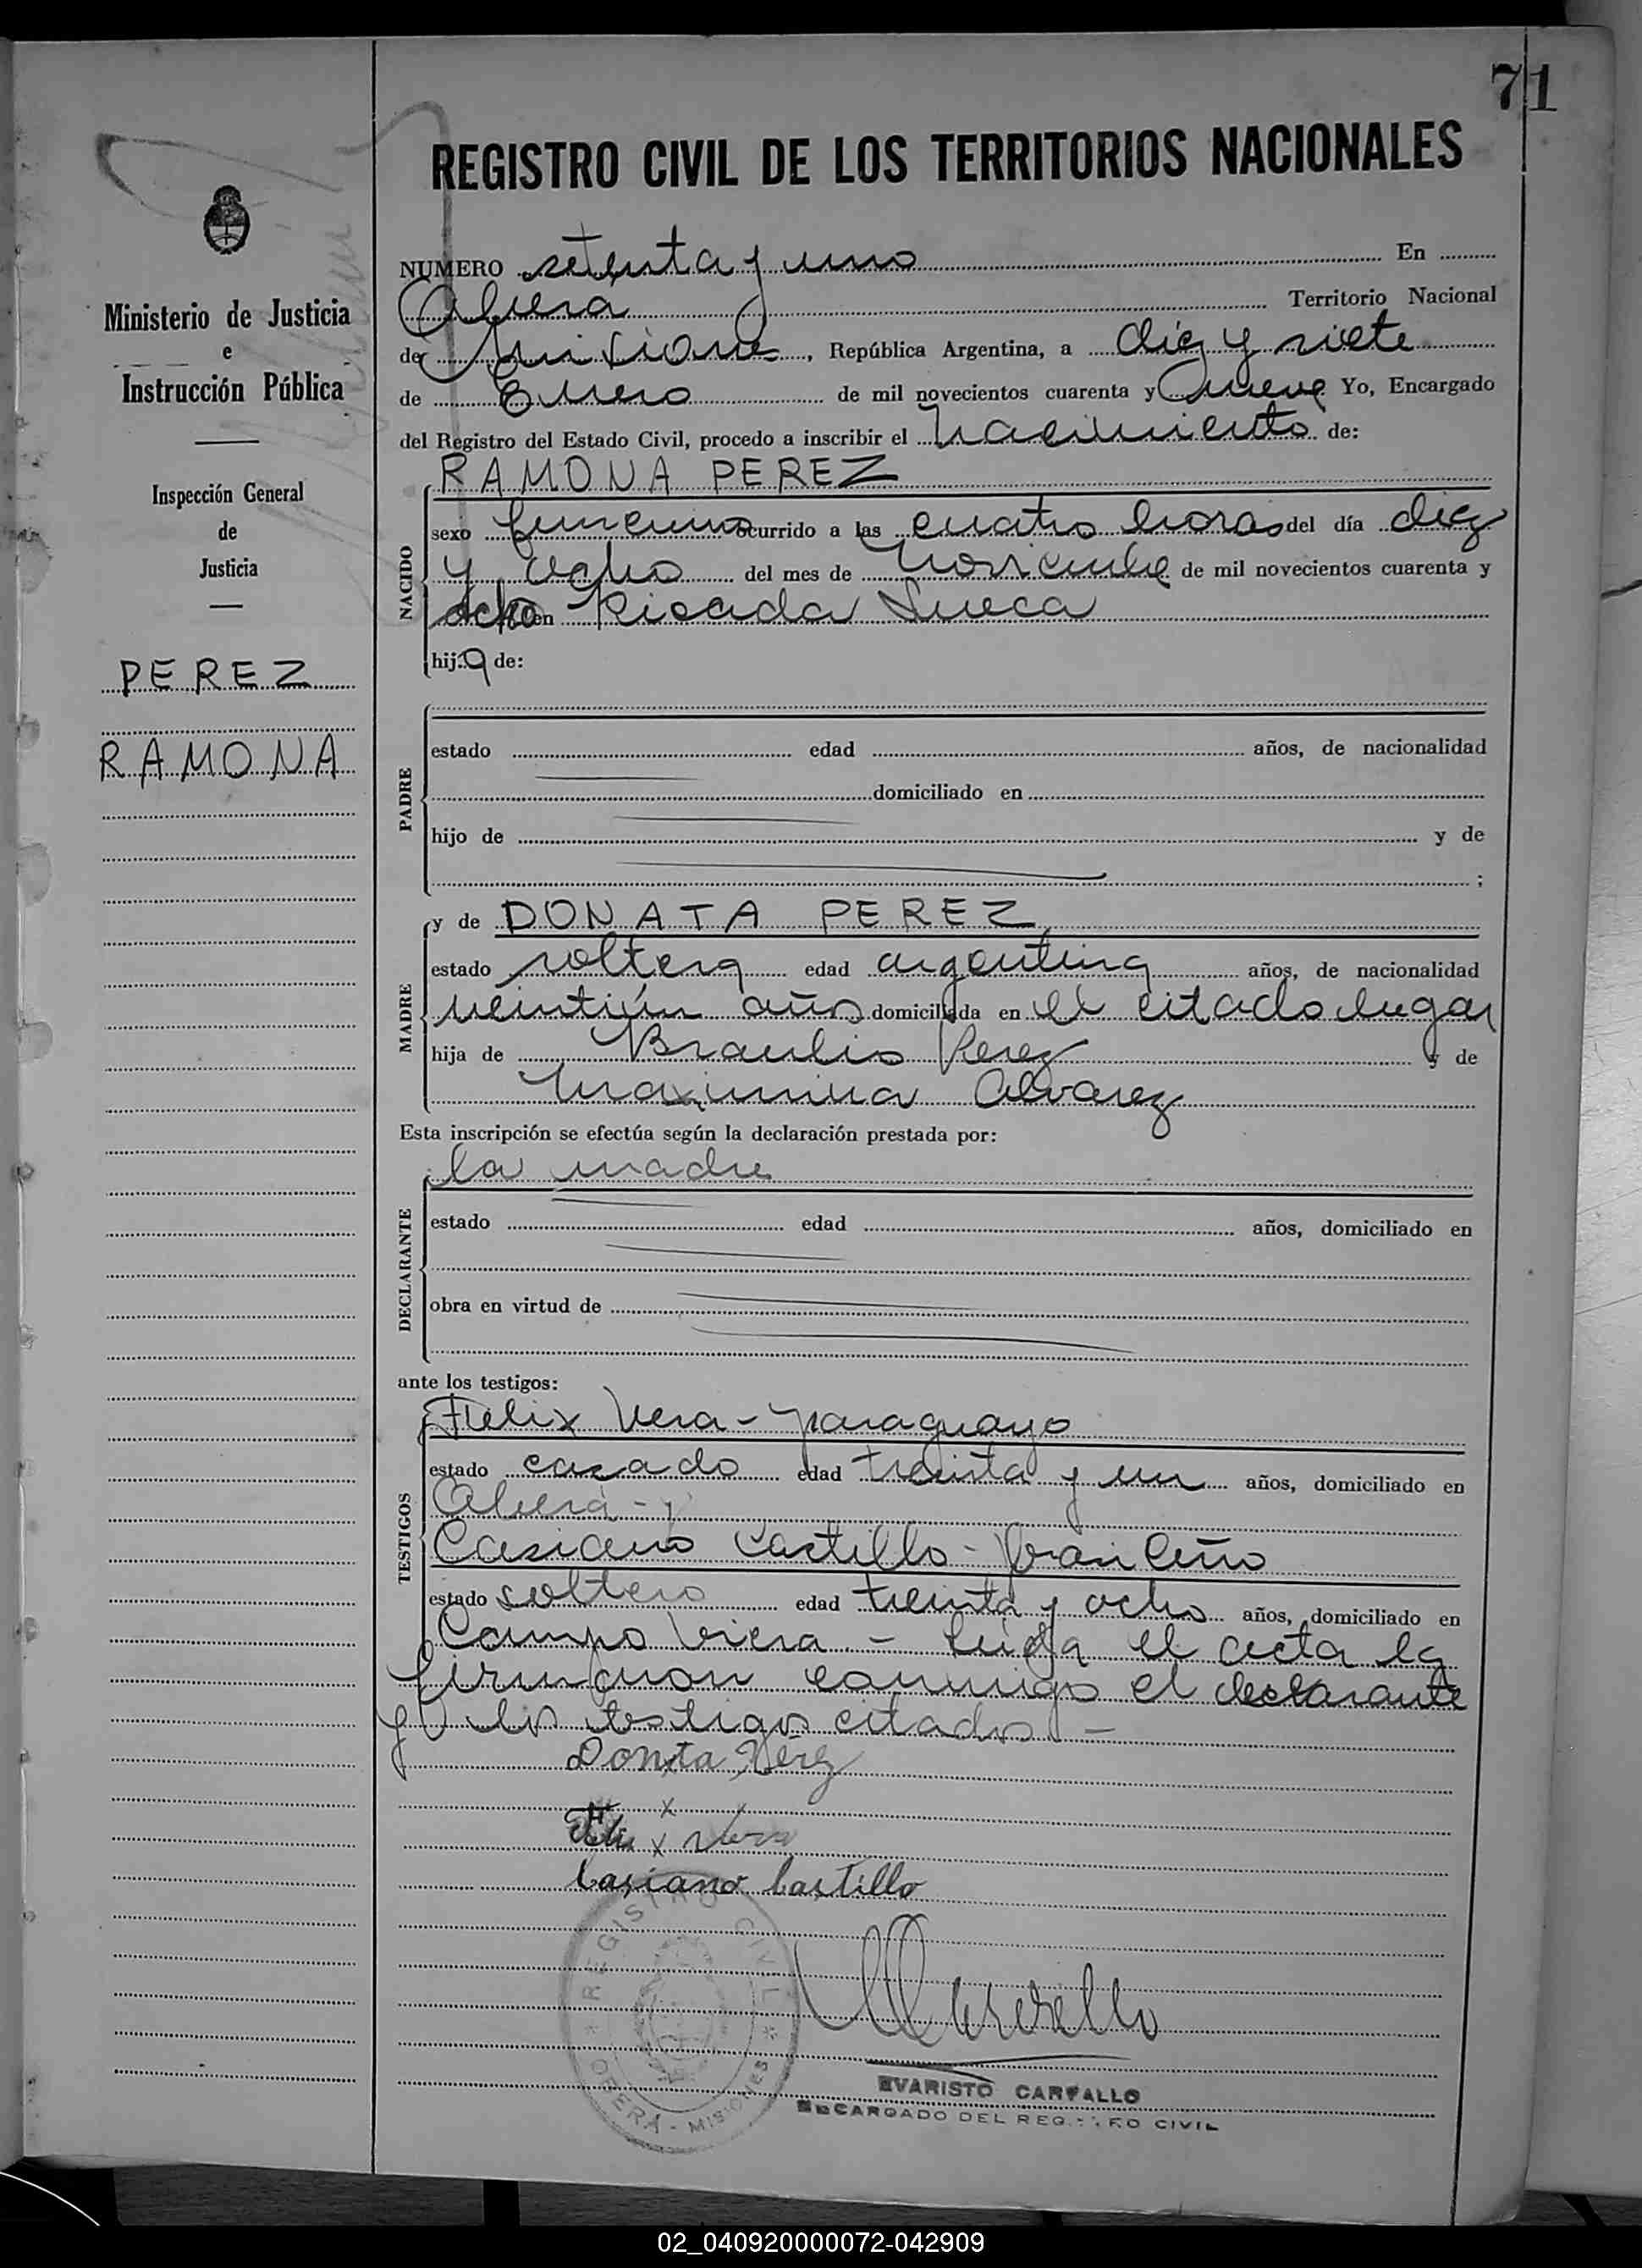 71
REGISTRO CIVIL DE LOS TERRITORIOS NACIONALES
Ministerio de Justicia
e
Instrucción Pública
Inspección General
de
Justicia
PEREZ
RAMONA
NUMERO setenta y uno En
Oberá Territorio Nacional
de Misiones, República Argentina, a diez y siete
de Enero de mil novecientos cuarenta y nueve Yo, Encargado
del Registro del Estado Civil, procedo a inscribir el nacimiento de:
NACIDO
RAMONA PEREZ
sexo femenino ocurrido a las cuatro horas del día diez
y ocho del mes de noviembre de mil novecientos cuarenta y
ocho en Picada Sueca
hija de:
PADRE
estado edad años, de nacionalidad
domiciliado en
hijo de y de
;
MADRE
y de DONATA PEREZ
estado soltera edad argentina años, de nacionalidad
veintiún años domiciliada en el citado lugar
hija de Braulio Perez y de
Maximina Alvarez
Esta inscripción se efectúa según la declaración prestada por:
DECLARANTE
la madre
estado edad años, domiciliado en
obra en virtud de
ante los testigos:
TESTIGOS
Felix Vera - paraguayo
estado casado edad treinta y un años, domiciliado en
Oberá - y
Casiano Castillo - brasileño
estado soltero edad treinta y ocho años, domiciliado en
Campo Viera - Leida el acta la
firmaron conmigo el declarante
y los testigos citados. -
Donata Pérez
Felix Vera
Casiano Castillo
REGISTRO CIVIL
* OBERÁ - MISIONES *
EVARISTO CARVALLO
ENCARGADO DEL REGISTRO CIVIL
02_040920000072-042909